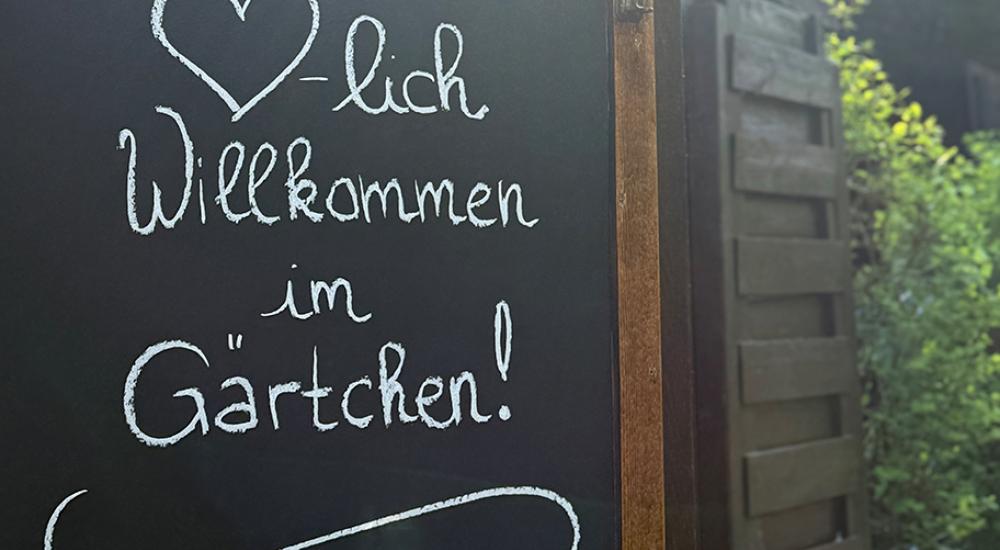 ♡-lich
Willkommen
im
Gärtchen!